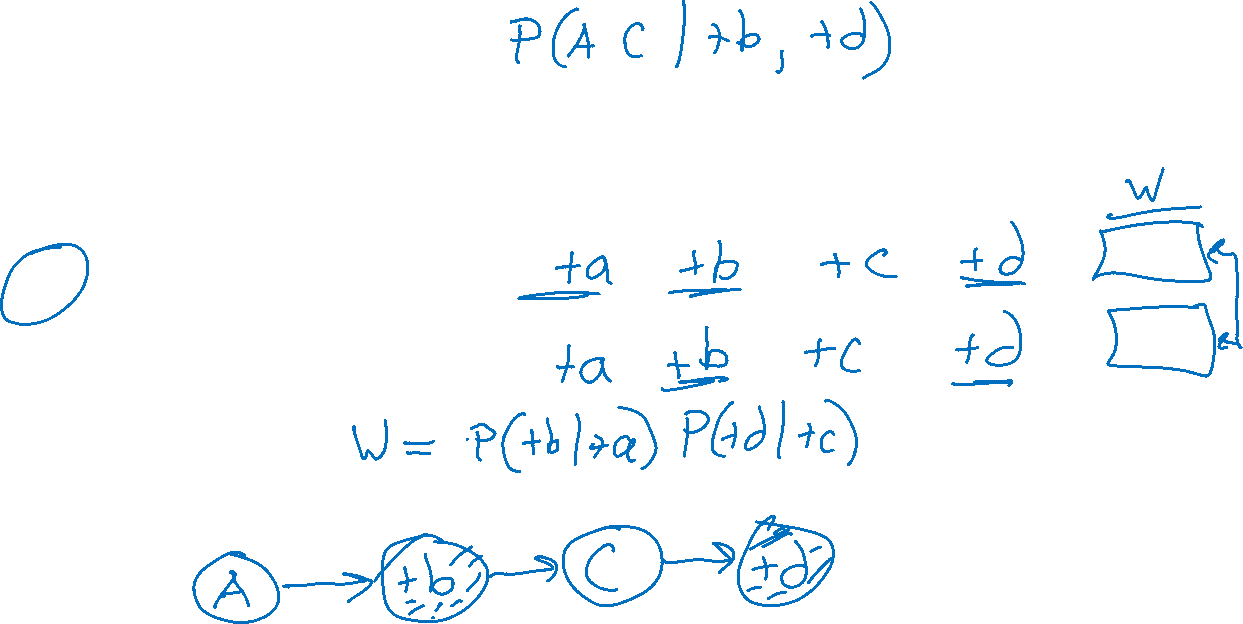 P(A C | +b, +d)
W
+a +b +c +d
+a +b +c +d
W = P(+b|+a) P(+d|+c)
A +b C +d